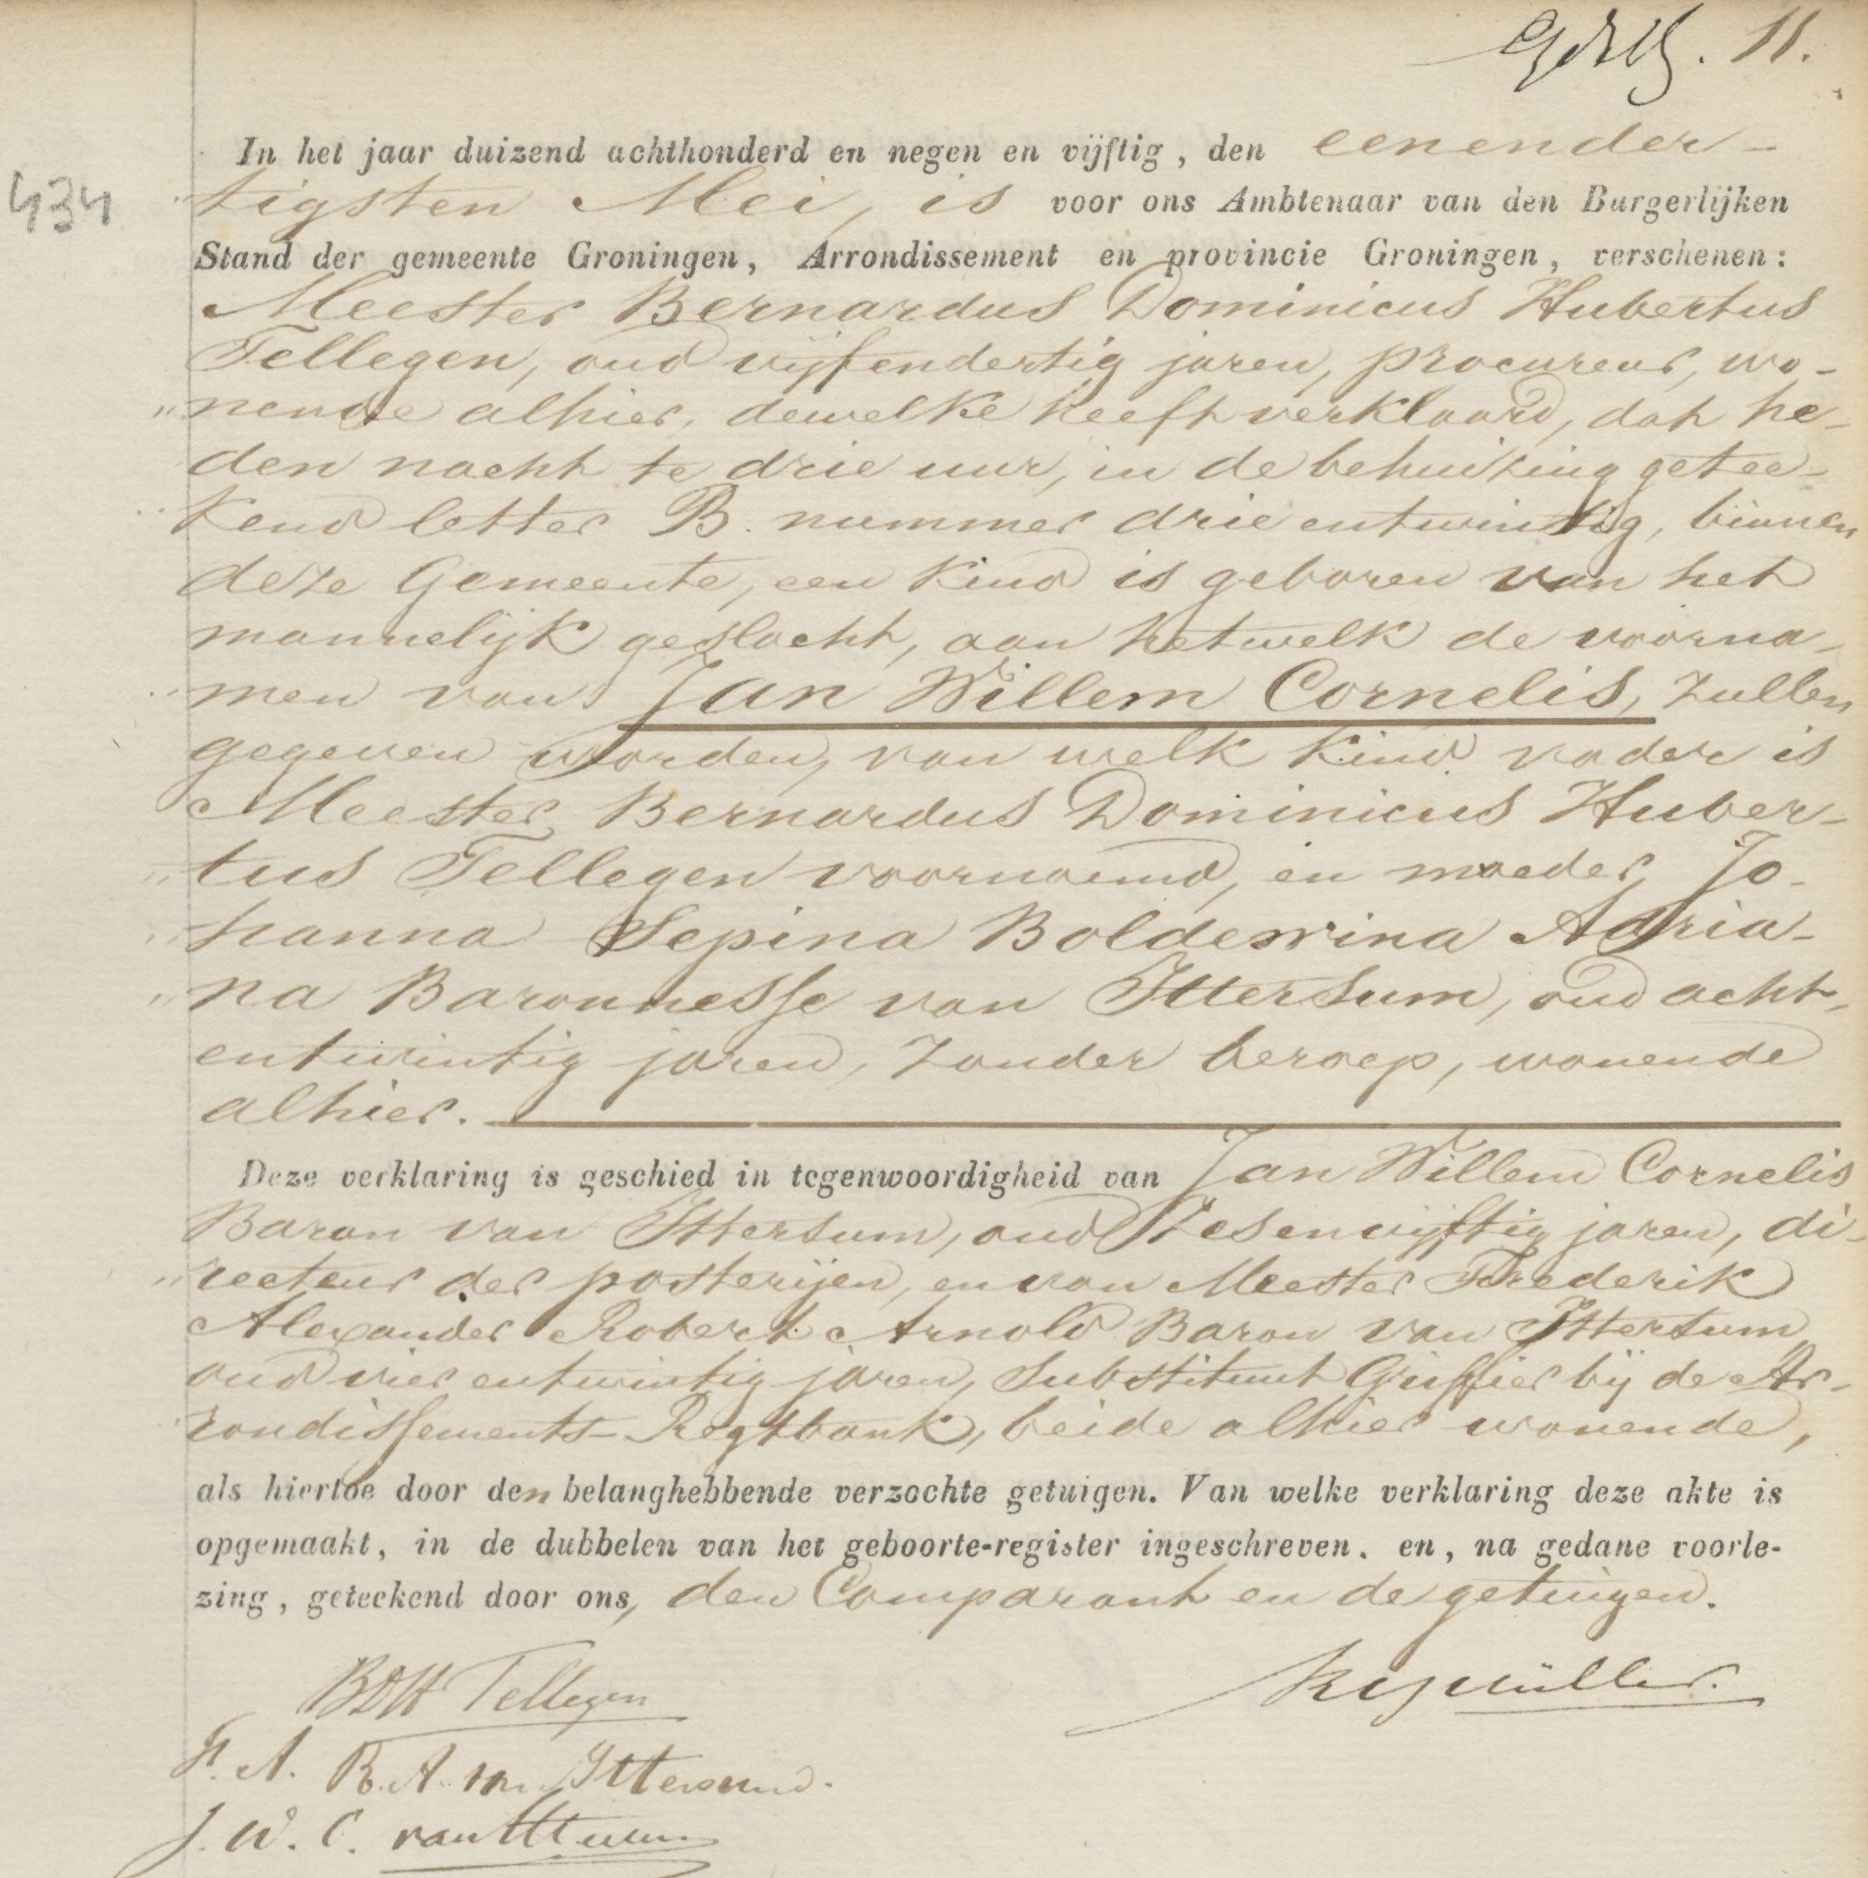 11.
In het jaar duizend achthonderd en negen en vijftig, den eenender-
434
tigsten Mei, is voor ons Ambtenaar van den Burgerlijken
Stand der gemeente Groningen, Arrondissement en provincie Groningen, verschenen:
Meester Bernardus Dominicus Hubertus
Tellegen, oud vijfendertig jaren, procureur, wo-
nende alhier, dewelke heeft verklaard, dat he-
den nacht te drie uur, in de behuizing getee-
kend letter B. nummer drie entwintig, binnen
deze Gemeente, een kind is geboren van het
mannelijk geslacht, aan hetwelk de voorna-
men van Jan Willem Cornelis, zullen
gegeven worden, van welk kind vader is
Meester Bernardus Dominicus Huber-
tus Tellegen voornoemd, en moeder, Jo-
hanna Sepina Boldewina Adria-
na Baronnesse van Ittersum, oud acht-
entwintig jaren, zonder beroep, wonende
alhier.
Deze verklaring is geschied in tegenwoordigheid van Jan Willem Cornelis
Baron van Ittersum, oud zesenvijftig jaren, di-
recteur der posterijen, en van Meester Frederik
Alexander Robert Arnold Baron van Ittersum
oud vier entwintig jaren, Substituut Griffier bij de Ar-
rondissements-Regtbank, beide alhier wonende,
als hiertoe door den belanghebbende verzochte getuigen. Van welke verklaring deze akte is
opgemaakt, in de dubbelen van het geboorte-register ingeschreven, en, na gedane voorle-
zing, geteekend door ons, den Comparant en de getuigen.
BDH Tellegen
Müller.
F. A. R. A. van Ittersum.
J. W. C. van Ittersum